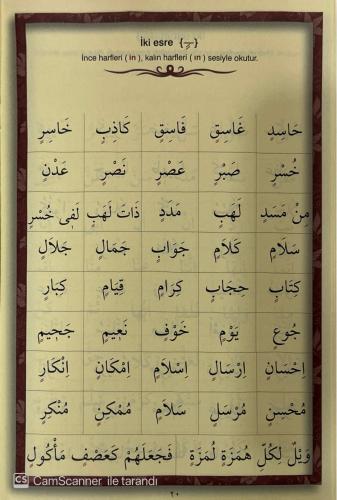 İki esre {ـٍ}
İnce harfleri ( in ), kalın harfleri ( ın ) sesiyle okutur.
حَاسِدٍ غَاسِقٍ فَاسِقٍ كَاذِبٍ خَاسِرٍ
خُسْرٍ صَبْرٍ عَصْرٍ نَصْرٍ عَدْنٍ
مِنْ مَسَدٍ لَهَبٍ مَدَدٍ ذَاتَ لَهَبٍ لَفِى خُسْرٍ
سَلَامٍ كَلَامٍ جَوَابٍ جَمَالٍ جَلَالٍ
كِتَابٍ حِجَابٍ كِرَامٍ قِيَامٍ كِبَارٍ
جُوعٍ يَوْمٍ خَوْفٍ نَعِيمٍ جَحِيمٍ
اِحْسَانٍ اِرْسَالٍ اِسْلَامٍ اِمْكَانٍ اِنْكَارٍ
مُحْسِنٍ مُرْسَلٍ سَلَامٍ مُمْكِنٍ مُنْكِرٍ
وَيْلٌ لِكُلِّ هُمَزَةٍ لُمَزَةٍ فَجَعَلَهُمْ كَعَصْفٍ مَأْكُولٍ
CS CamScanner ile tarandı
٢٠